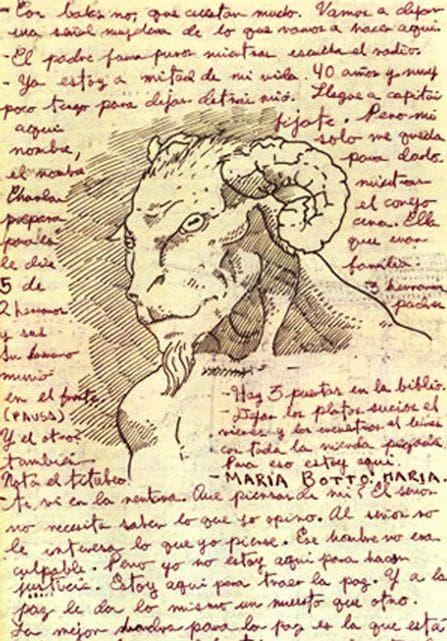 - Con balas no, que cuestan mucho. Vamos a dejar
una señal muy clara de lo que vamos a hacer aquí.
- El padre fuma puros mientras escucha el radio.
- Ya estoy a mitad de mi vida. 40 años y muy
poco tengo para dejar detrás mío. Llegue a capitán
aquí fijate. Pero mi
nombre, solo me queda
el nombre para darlo
Charlan mientras
prepara el conejo
para la cena. Ella
le dice que eran
5 de familia.
2 hermanos 3 hermanas
y
Su hermano
murió
en el frente
(PAUSA)
Y el otro?
también
Nota el titubeo
- Hay 3 puertas en la
- Dejan los platos sucios el
viernes y los encuentras el lunes
con toda la mierda pegada.
Para eso estoy aquí.
- MARIA BOTTO: MARIA.
- Te vi en la mentira. Que piensas de mi? El señor
no necesita saber lo que yo opino. Al señor no
le interesa lo que yo piense. Ese hombre no era
culpable. Pero yo no estoy aquí para hacer
justicia. Estoy aquí para traer la paz. Y a la
paz le da lo mismo un muerto que otro.
La mejor para la paz es la que esta